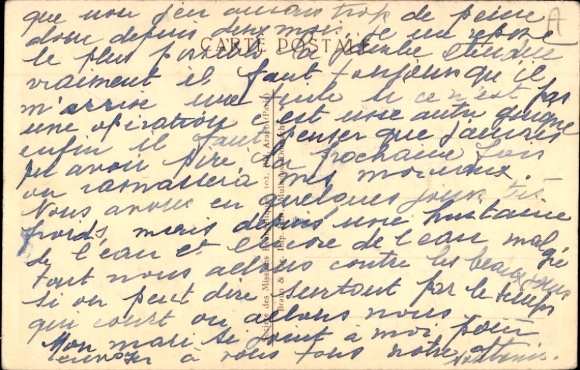 que nous j'en aurons trop de peine
donc depuis deux mois je me repose
CARTE POSTALE
le plus possible la jambe étendue
vraiment il faut toujours qu'il
m'arrive une tuile si ce n'est pas
une opération c'est une autre guigne
enfin il faut penser que j'aurais
pu avoir pire, la prochaine fois
on ramassera mes morceaux.
Nous avons eu quelques jours très
froids, mais depuis une huitaine
de l'eau et encore de l'eau malgré
tout nous allons contre les beaux jours
si on peut dire surtout par le temps
qui court où allons nous
Mon mari se joint à moi pour
envoyer à vous tous notre
des Missions
Arago (Paris)
Braun &